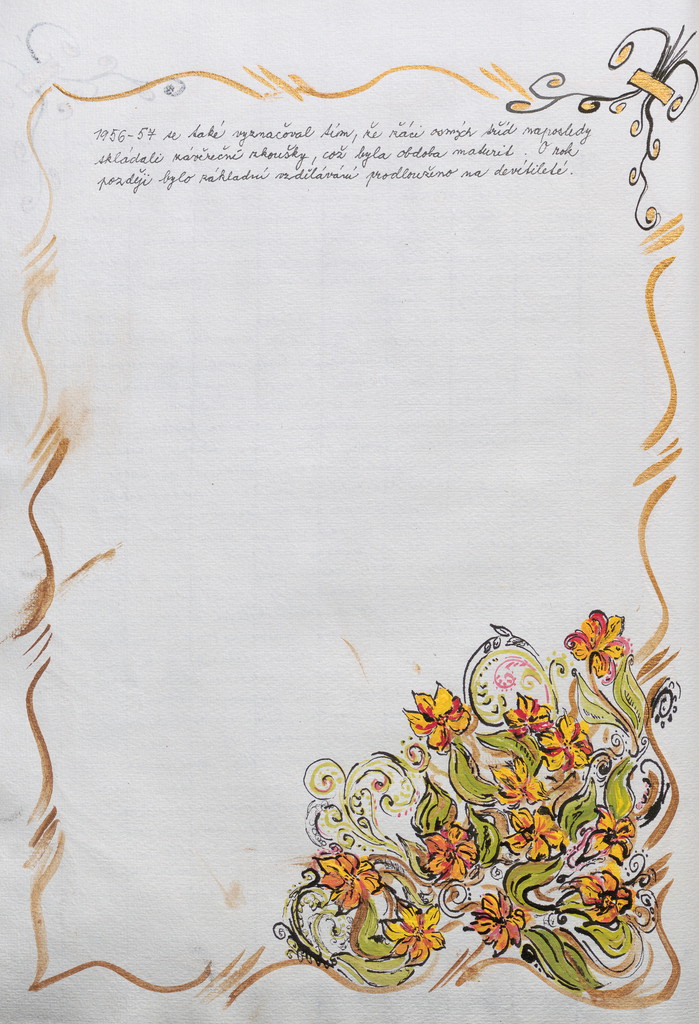 1956-57 se také vyznačoval tím, že žáci osmých tříd naposledy
skládali závěrečné zkoušky, což byla obdoba maturit. O rok
později bylo základní vzdělávání prodlouženo na devítileté.